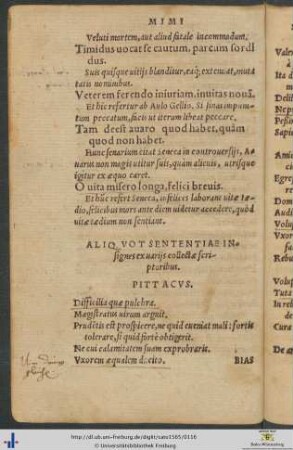 MIMI
Veluti mortem, aut aliud fatale incommodum.
Timidus uocat se cautum, parcum sordi
dus.
Suis quisque uitijs blanditur, eaq́; extenuat, muta
tatis nominibus.
Veterem ferendo iniuriam, inuitas nouã.
Et hic refertur ab Aulo Gellio. Si sinas impuni-
tum peccatum, facis ut iterum libeat peccare.
Tam deest auaro quod habet, quàm
quod non habet.
Hunc senarium citat Seneca in controuersijs. A-
uarus non magis utitur suis, quàm alienis, utrisque
igitur ex æquo caret.
O uita misero longa, felici breuis.
Et huc refert Seneca, infelices laborant uitæ tæ-
dio, felicibus mors ante diem uidetur accedere, quòd
uitæ tædium non sentiant.
ALIQVOT SENTENTIAE IN-
signes ex uarijs collectæ scri-
ptoribus.
PITTACVS.
Difficilia quæ pulchra.
Magistratus uirum arguit.
Prudẽtis est prospicere, ne quid eueniat mali: fortis
tolerare, si quid fortè obtigerit.
Ne cui calamitatem suam exprobraris.
Vxorem æqualem ducito.
BIAS
http://dl.ub.uni-freiburg.de/diglit/cato1565/0116
© Universitätsbibliothek Freiburg